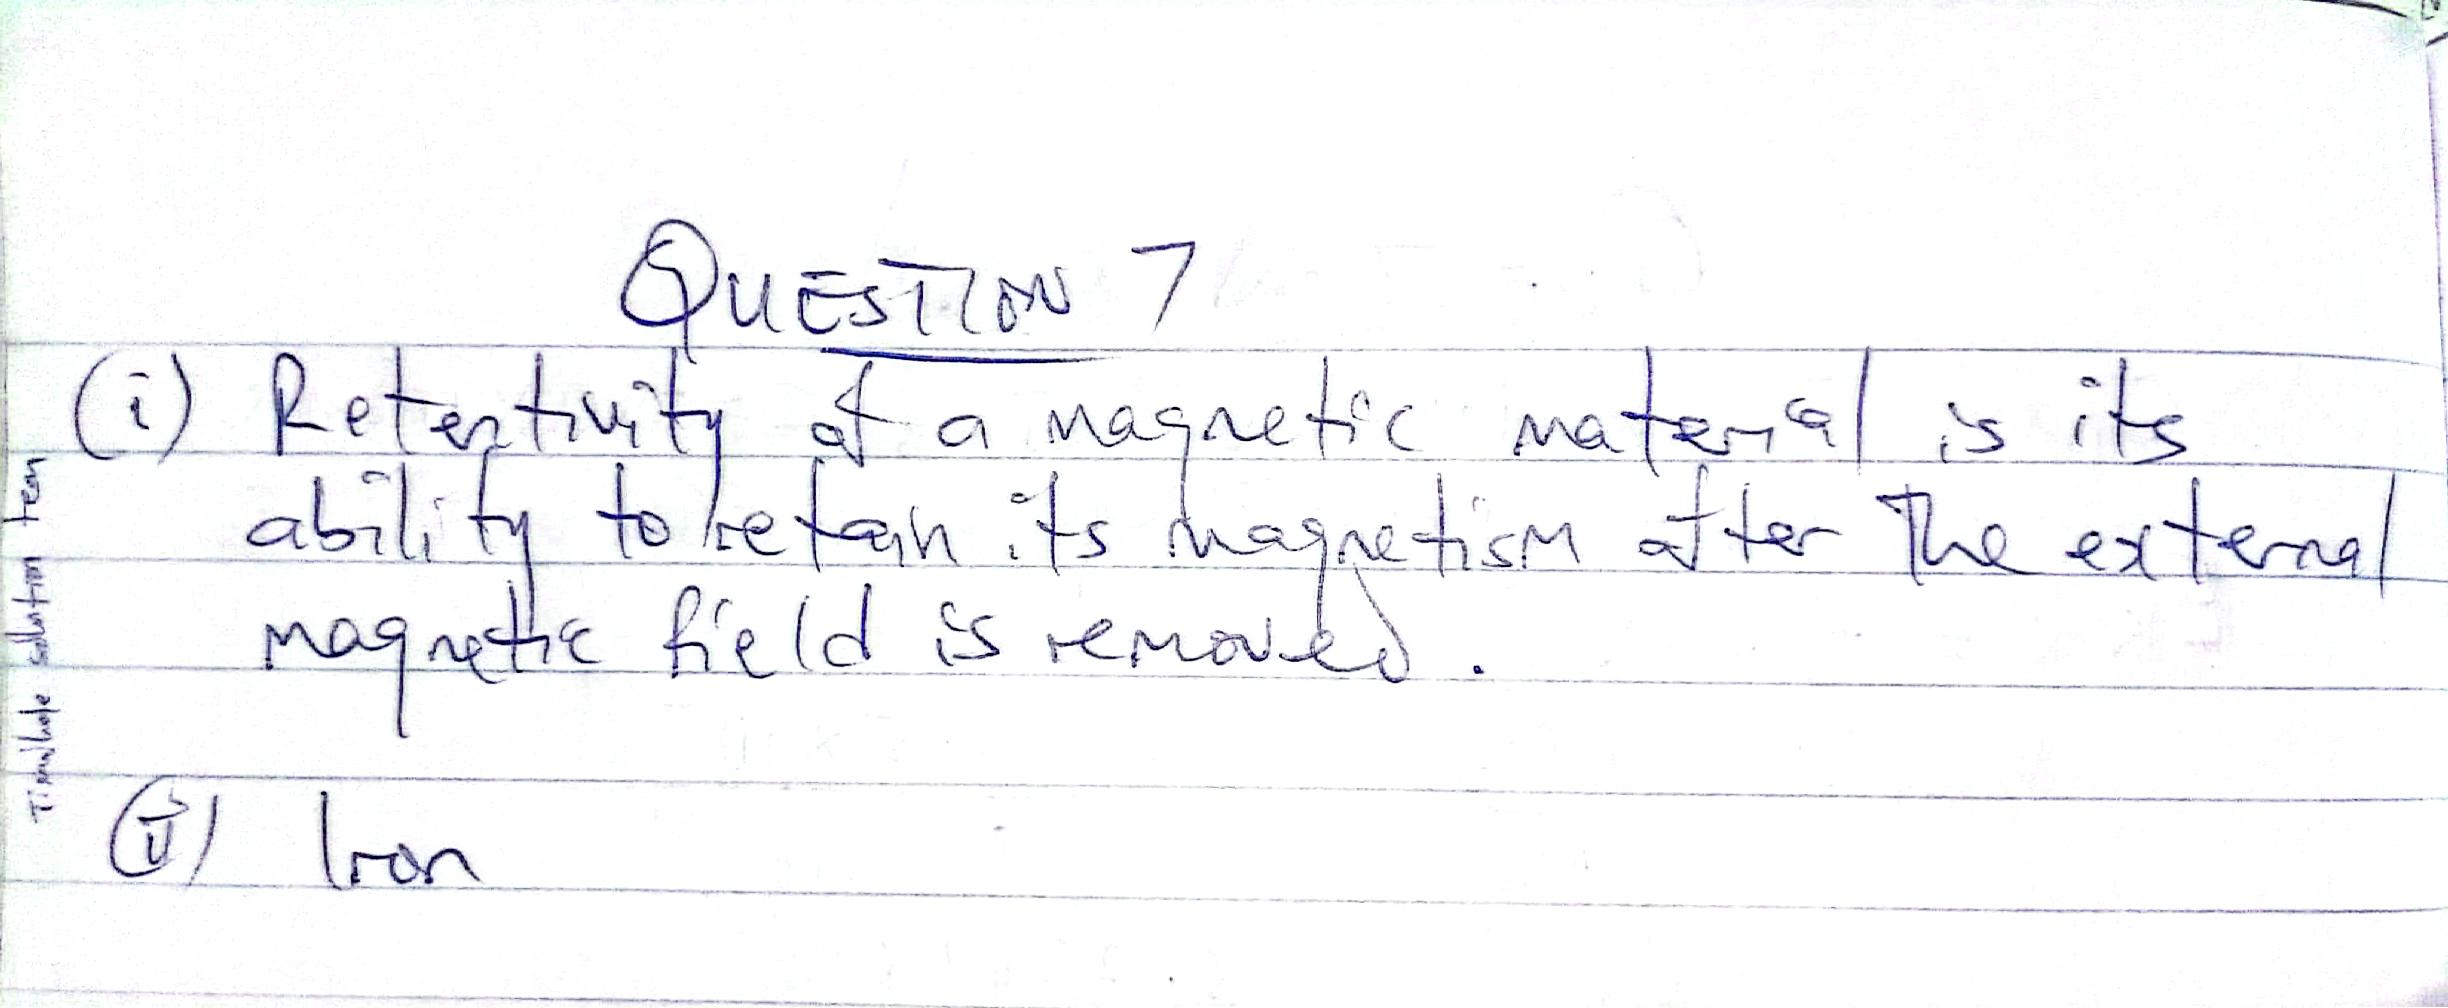 QUESTION 7
(i) Retentivity of a magnetic material is its
ability to retain its magnetism after The external
magnetic field is removed.
(ii) Iron
solution team